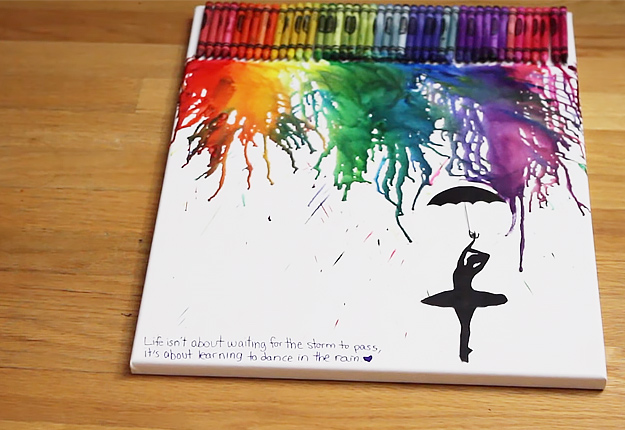 Life isn't about waiting for the storm to pass,
it's about learning to dance in the rain